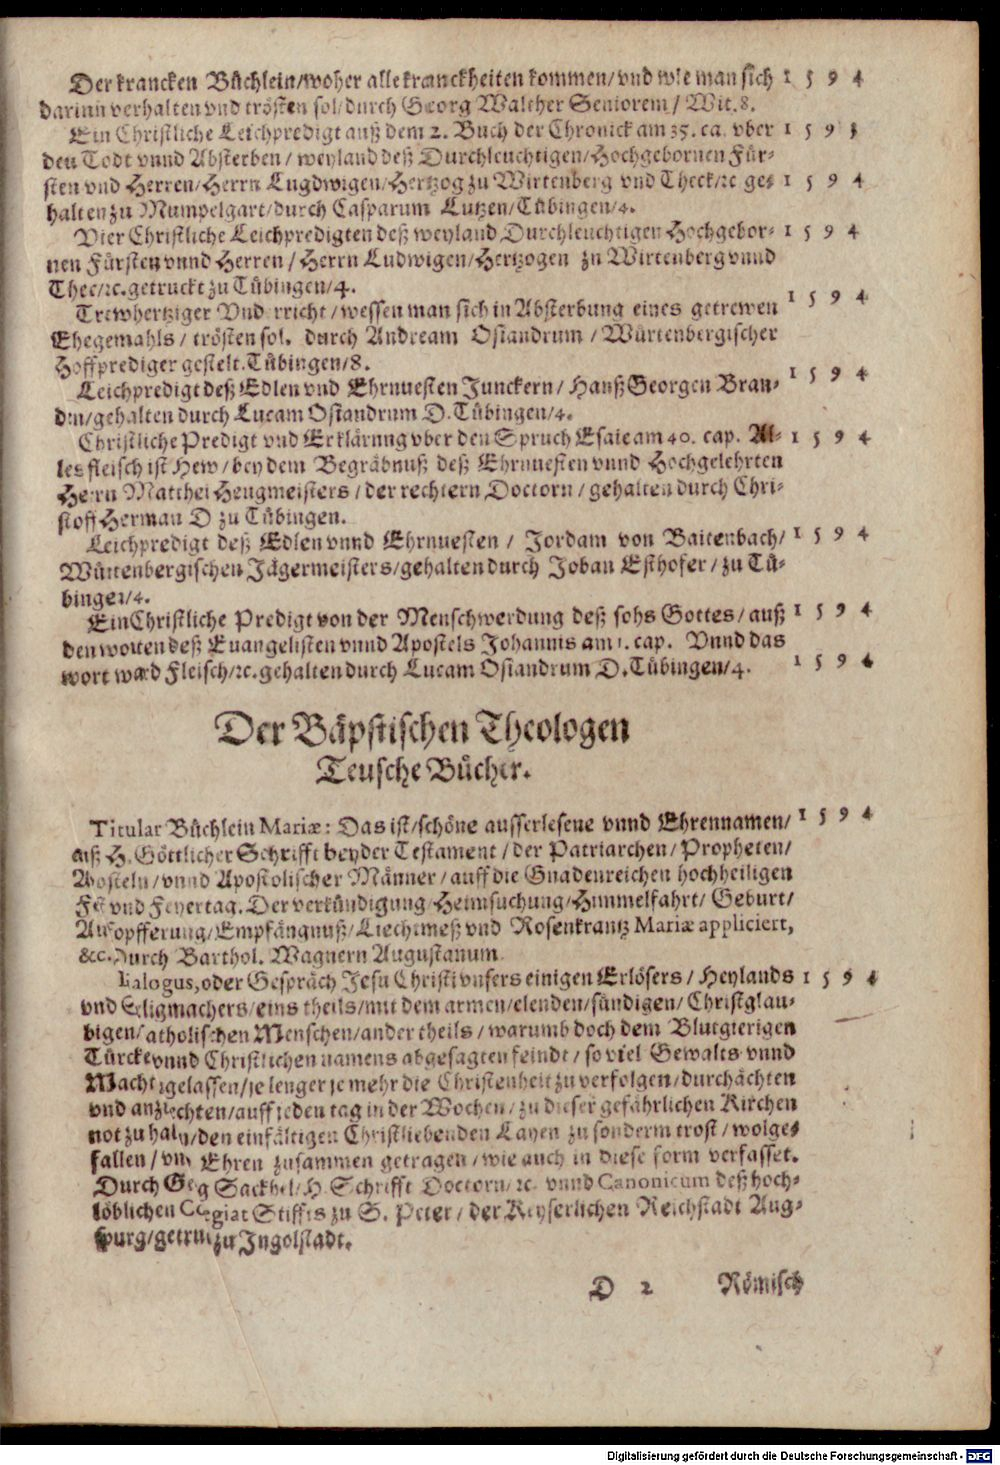 Der krancken Büchlein/woher alle kranckheiten kommen/vnd wie man sich 1 5 9 4
darinn verhalten vnd trösten sol/durch Georg Walther Seniorem / Wit. 8.
Ein Christliche Leichpredigt auß dem 2. Buch der Chronick am 35. ca. vber 1 5 9 3
den Todt vnnd Absterben / weyland deß Durchleuchtigen/Hochgebornen Für-
sten vnd Herren/Herrn Lugdwigen/Hertzog zu Wirtenberg vnd Theck/ꝛc ge- 1 5 9 4
halten zu Mumpelgart/durch Casparum Lutzen/Tübingen/4.
Vier Christliche Leichpredigten deß weyland Durchleuchtigen Hochgebor- 1 5 9 4
nen Fürsten vnnd Herren / Herrn Ludwigen/Hertzogen zu Wirtenberg vnnd
Thec/ꝛc. getruckt zu Tübingen/4.
Trewhertziger Vnd rricht / wessen man sich in Absterbung eines getrewen 1 5 9 4
Ehegemahls / trösten sol. durch Andream Osiandrum / Würtenbergischer
Hoffprediger gestelt. Tübingen/8.
Leichpredigt deß Edlen vnd Ehrnuesten Junckern / Hanß Georgen Bran- 1 5 9 4
den/gehalten durch Lucam Osiandrum D. Tübingen/4.
Christliche Predigt vnd Erklärung vber den Spruch Esaie am 40. cap. Al- 1 5 9 4
les fleisch ist Hew / bey dem Begräbnuß deß Ehrnuesten vnnd Hochgelehrten
Herrn Matthei Hengmeisters / der rechtern Doctorn / gehalten durch Chri-
stoff Herman D zu Tübingen.
Leichpredigt deß Edlen vnnd Ehrnuesten / Jordam von Baitenbach/ 1 5 9 4
Würtenbergischen Jägermeisters/gehalten durch Johan Esthofer / zu Tü-
bingen/4.
Ein Christliche Predigt von der Menschwerdung deß sohs Gottes / auß 1 5 9 4
den worten deß Euangelisten vnnd Apostels Johannis am 1. cap. Vnnd das
wort ward Fleisch/ꝛc. gehalten durch Lucam Osiandrum D. Tübingen/4. 1 5 9 4
Der Bäpstischen Theologen
Teusche Bücher.
Titular Büchlein Mariæ: Das ist/schöne ausserlesene vnnd Ehrennamen/ 1 5 9 4
auß H. Göttlicher Schrifft beyder Testament / der Patriarchen / Propheten/
Aposteln / vnnd Apostolischer Männer / auff die Gnadenreichen hochheiligen
Fest vnd Feyertag. Der verkündigung/Heimsuchung/Himmelfahrt/ Geburt/
Aufopfferung/Empfängnuß/Liechtmeß vnd Rosenkrantz Mariæ appliciert,
&c. Durch Barthol. Wagnern Augustanum.
ialogus, oder Gespräch Jesu Christi vnsers einigen Erlösers / Heylands 1 5 9 4
vnd Seligmachers/eins theils/mit dem armen/elenden/sündigen/ Christglau-
bigen/ atholischen Menschen/ander theils / warumb doch dem Blutgierigen
Türcken vnnd Christlichen namens abgesagten feindt / so viel Gewalts vnnd
Macht zgelassen/je lenger je mehr die Christenheit zu verfolgen/durchächten
vnd anzfechten/auff jeden tag in der Wochen / zu dieser gefährlichen Kirchen
not zu haln/den einfältigen Christliebenden Layen zu sonderm trost / wolge-
fallen / vnd Ehren zusammen getragen / wie auch in diese form verfasset.
Durch Geg Sackhel/H. Schrifft Doctorn/ ꝛc. vnnd Canonicum deß hoch-
löblichen Collegiat Stiffts zu S. Peter / der Keyserlichen Reichstadt Aug-
spurg/getruckt zu Ingolstadt.
D 2 Römisch
Digitalisierung gefördert durch die Deutsche Forschungsgemeinschaft - DFG